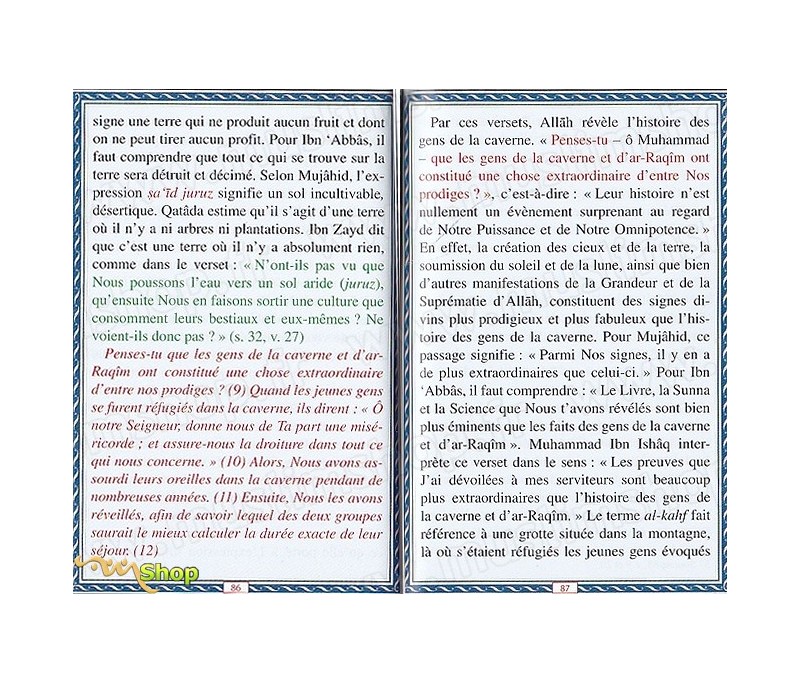 signe une terre qui ne produit aucun fruit et dont
on ne peut tirer aucun profit. Pour Ibn ‘Abbâs, il
faut comprendre que tout ce qui se trouve sur la
terre sera détruit et décimé. Selon Mujâhid, l’ex-
pression ṣa‘īd juruz signifie un sol incultivable,
désertique. Qatâda estime qu’il s’agit d’une terre
où il n’y a ni arbres ni plantations. Ibn Zayd dit
que c’est une terre où il n’y a absolument rien,
comme dans le verset : « N’ont-ils pas vu que
Nous poussons l’eau vers un sol aride (juruz),
qu’ensuite Nous en faisons sortir une culture que
consomment leurs bestiaux et eux-mêmes ? Ne
voient-ils donc pas ? » (s. 32, v. 27)
Penses-tu que les gens de la caverne et d’ar-
Raqîm ont constitué une chose extraordinaire
d’entre nos prodiges ? (9) Quand les jeunes gens
se furent réfugiés dans la caverne, ils dirent : « Ô
notre Seigneur, donne nous de Ta part une misé-
ricorde ; et assure-nous la droiture dans tout ce
qui nous concerne. » (10) Alors, Nous avons as-
sourdi leurs oreilles dans la caverne pendant de
nombreuses années. (11) Ensuite, Nous les avons
réveillés, afin de savoir lequel des deux groupes
saurait le mieux calculer la durée exacte de leur
séjour. (12)
Shop
86
Par ces versets, Allāh révèle l’histoire des
gens de la caverne. « Penses-tu – ô Muhammad
– que les gens de la caverne et d’ar-Raqîm ont
constitué une chose extraordinaire d’entre Nos
prodiges ? », c’est-à-dire : « Leur histoire n’est
nullement un évènement surprenant au regard
de Notre Puissance et de Notre Omnipotence. »
En effet, la création des cieux et de la terre, la
soumission du soleil et de la lune, ainsi que bien
d’autres manifestations de la Grandeur et de la
Suprématie d’Allāh, constituent des signes di-
vins plus prodigieux et plus fabuleux que l’his-
toire des gens de la caverne. Pour Mujâhid, ce
passage signifie : « Parmi Nos signes, il y en a
de plus extraordinaires que celui-ci. » Pour Ibn
‘Abbâs, il faut comprendre : « Le Livre, la Sunna
et la Science que Nous t’avons révélés sont bien
plus éminents que les faits des gens de la caverne
et d’ar-Raqîm ». Muhammad Ibn Ishâq inter-
prète ce verset dans le sens : « Les preuves que
J’ai dévoilées à mes serviteurs sont beaucoup
plus extraordinaires que l’histoire des gens de
la caverne et d’ar-Raqîm. » Le terme al-kahf fait
référence à une grotte située dans la montagne,
là où s’étaient réfugiés les jeunes gens évoqués
87